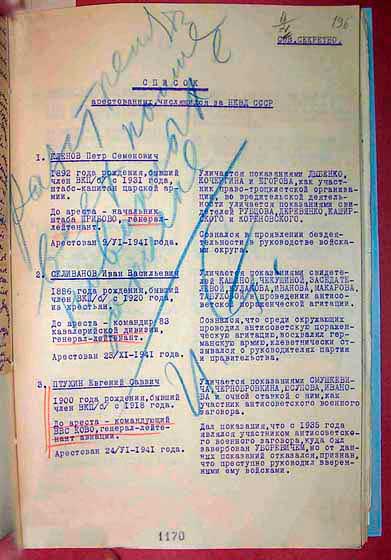 196
СОВ.СЕКРЕТНО.
СПИСОК
арестованных, числящихся за НКВД СССР
Расстрелять
всех
И. Ст.
1. КЛЕНОВ Петр Семенович
1892 года рождения, бывший
член ВКП/б/ с 1931 года,
штабс-капитан царской ар-
мии.
До ареста - начальник
штаба ПРИБОВО, генерал-
лейтенант.
Арестован 9/VI-1941 года.
Уличается показаниями
КОЧЕРГИНА и ЕГОРОВА, как участ-
ник право-троцкистской организа-
ции, во вредительской деятель-
ности уличается показаниями сви-
детелей РУНДОВА, ДЕРЕВЯНКО, КАШИР-
СКОГО и КОРЕНОВСКОГО.
Сознался в проявлении бездея-
тельности в руководстве войсками
округа.
2. СЕЛИВАНОВ Иван Васильевич
1886 года рождения, бывший
член ВКП/б/ с 1920 года,
из крестьян.
До ареста - командир 83
кавалерийской дивизии,
генерал-лейтенант.
Арестован 23/XI-1941 года.
Уличается показаниями свидете-
лей
ТАБУХОВА в проведении антисо-
ветской, пораженческой агитации.
Сознался, что среди окружающих
проводил антисоветскую поражен-
ческую агитацию, восхвалял гер-
манскую армию, клеветнически от-
зывался о руководителях партии
и правительства.
3. ПТУХИН Евгений Саввич
1900 года рождения, бывший
член ВКП/б/ с 1918 года.
До ареста - командующий
ВВС КОВО, генерал-лейте-
нант авиации.
Арестован 24/VI-1941 года.
Уличается показаниями СМУШКЕВИ-
ЧА, ЧЕРНОБРОВКИНА, ЮСУПОВА, ИВАНО-
ВА и очной ставкой с ним, как
участник антисоветского военного
заговора.
Дал показания, что с 1935 года
являлся участником антисоветско-
го военного заговора, куда был
завербован УБОРЕВИЧЕМ, но от дан-
ных показаний отказался, признав,
что преступно руководил вверен-
ными ему войсками.
1170